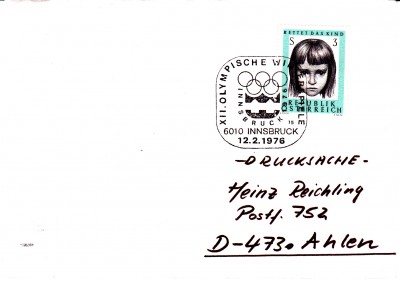 RETTET DAS KIND
S 3
REPUBLIK
ÖSTERREICH
XII. OLYMPISCHE WINTERSPIELE
INNSBRUCK 1976
6010 INNSBRUCK
12.2.1976
-DRUCKSACHE-
Heinz Reichling
Postf. 752
D-4730 Ahlen